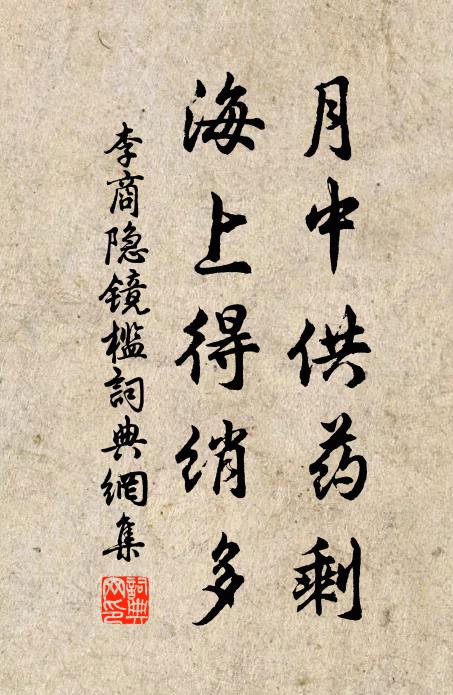 月中供药剩
海上得绡多
李商隐镜槛詞典網集
詞典網印